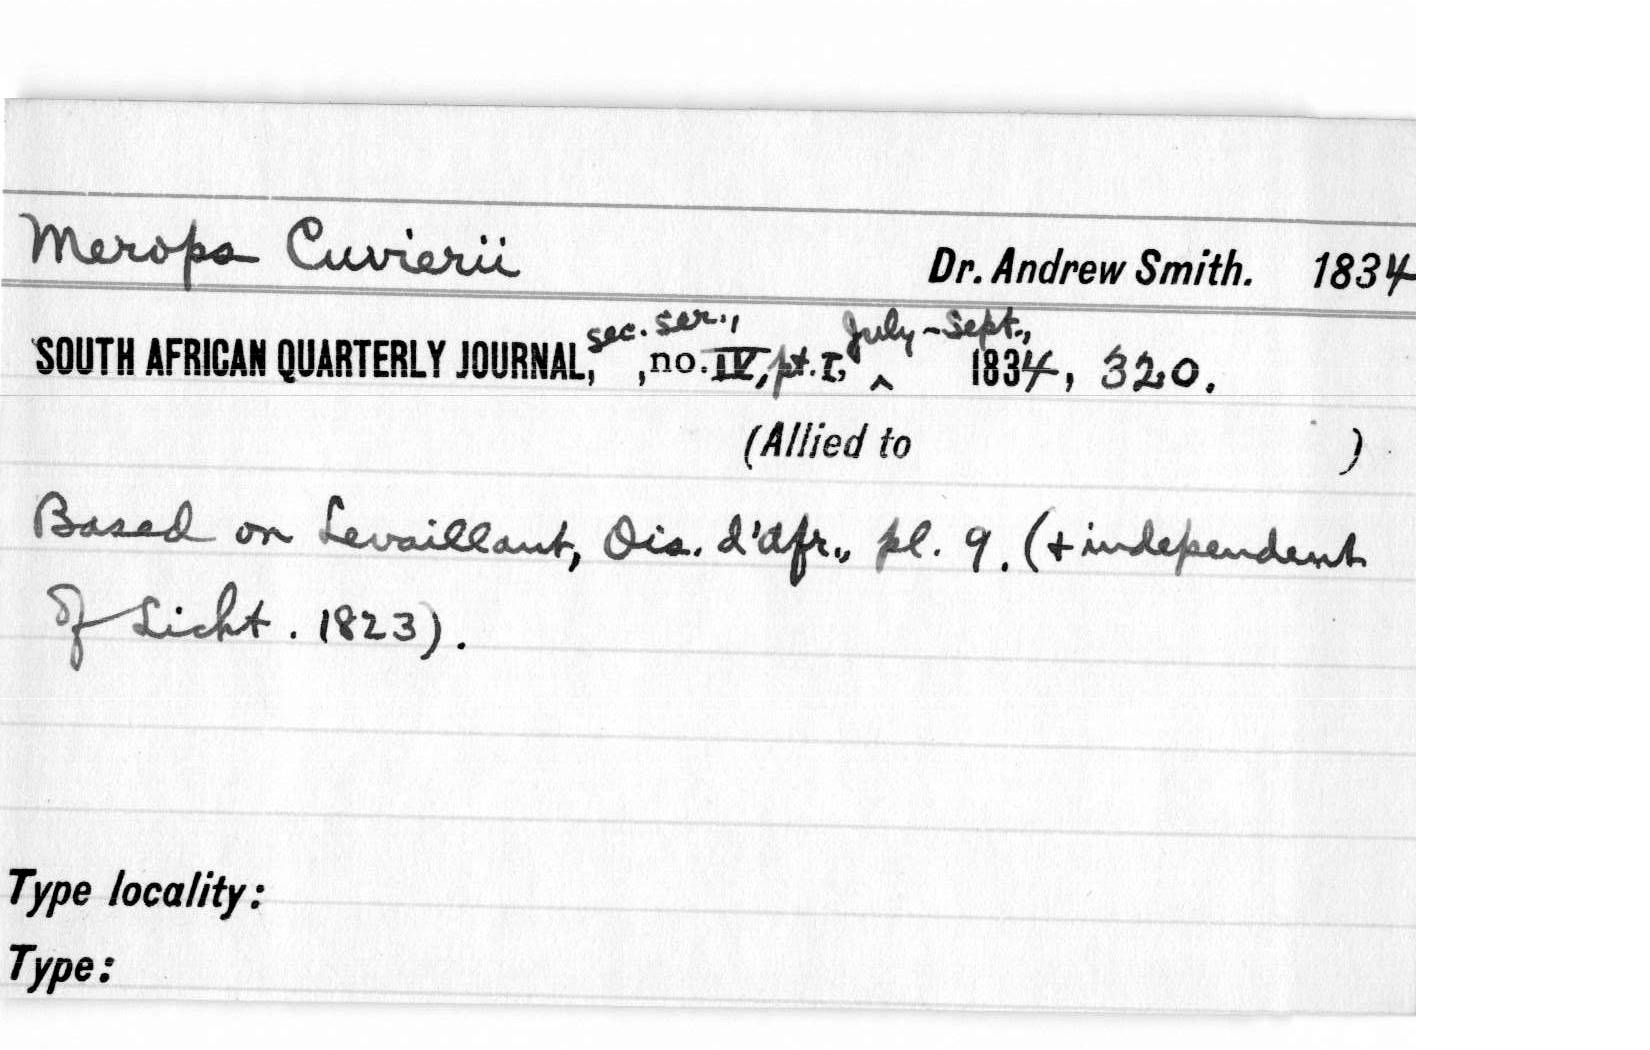 Merops Cuvierii Dr. Andrew Smith. 1834
SOUTH AFRICAN QUARTERLY JOURNAL, sec. ser., ,no. IV, pt. I, ^ July-Sept., 1834, 320.
(Allied to )
Based on Levaillant, Ois. d'Afr., pl. 9. (+ independent
of Licht. 1823).
Type locality:
Type: